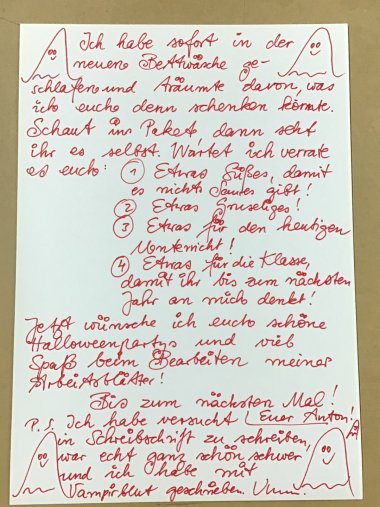 Ich habe sofort in der
neuene Bettwäsche ge-
schlafene und träumte davon, was
ich euch denn schenken könnte.
Schaut ins Paket, dann seht
ihr es selbst. Wartet ich verrate
es euch: ① Etwas Süßes, damit
es nichts Saures gibt!
② Etwas Gruseliges!
③ Etwas für den heutigen
Unterricht!
④ Etwas für die Klasse,
damit ihr bis zum nächsten
Jahr an mich denkt!
Jetzt wünsche ich euch schöne
Halloweenpartys und viel
Spaß beim Bearbeiten meiner
Arbeitsblätter!
Bis zum nächsten Mal!
Euer Anton!
P.S. Ich habe versucht
in Schreibschrift zu schreiben,
war echt ganz schön schwer
und ich habe mit
Vampirblut geschrieben.